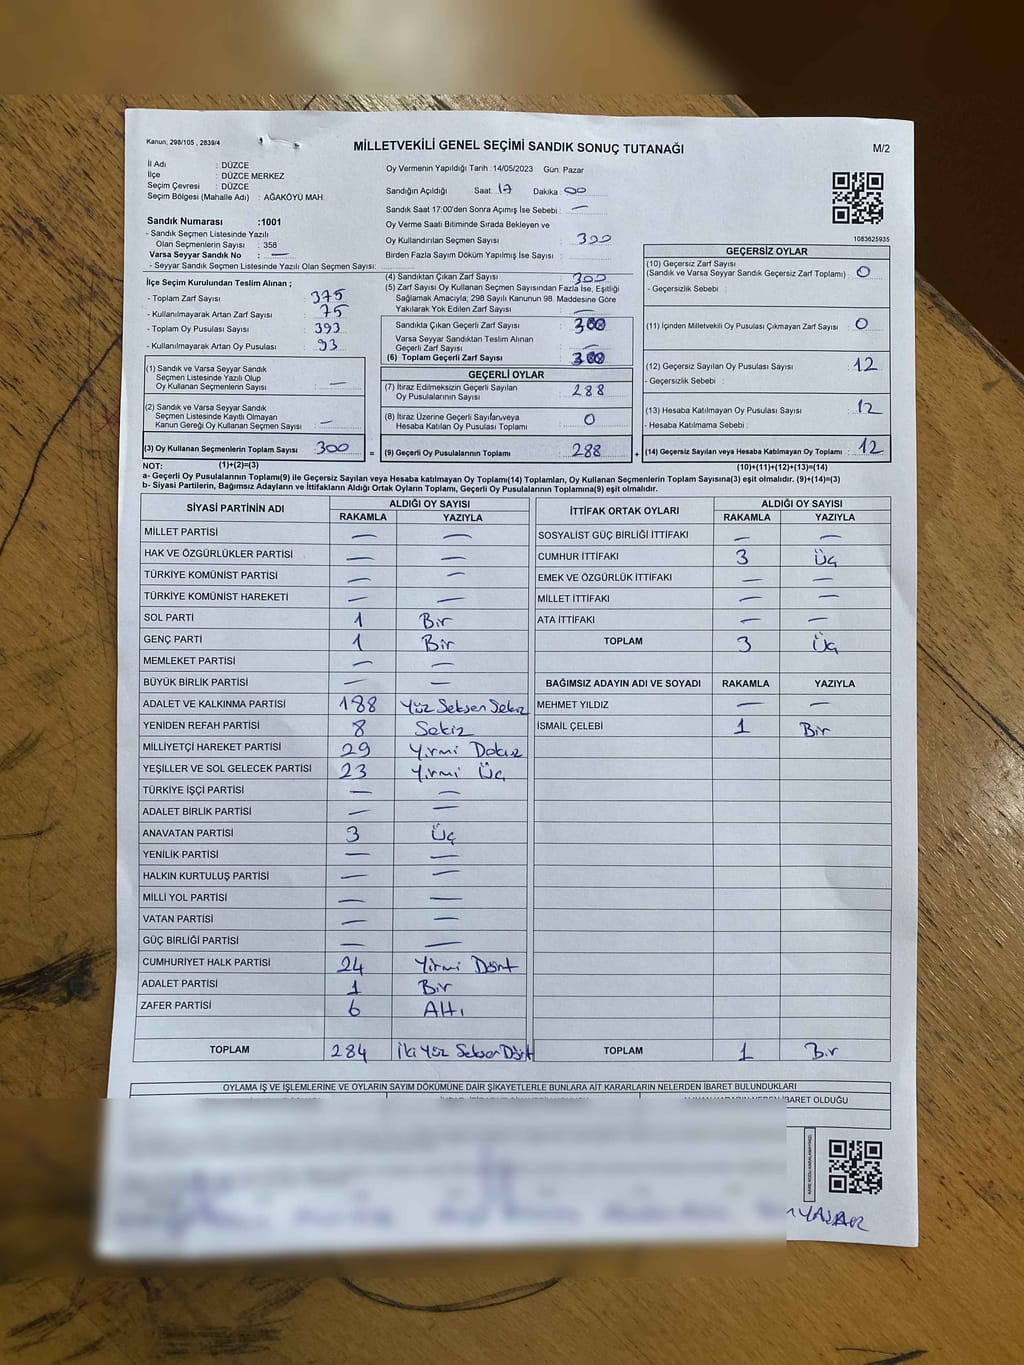 Kanun, 298/105 , 2839/4
MİLLETVEKİLİ GENEL SEÇİMİ SANDIK SONUÇ TUTANAĞI
M/2
İl Adı : DÜZCE
İlçe : DÜZCE MERKEZ
Seçim Çevresi : DÜZCE
Seçim Bölgesi (Mahalle Adı) : AĞAKÖYÜ MAH.
Sandık Numarası :1001
- Sandık Seçmen Listesinde Yazılı
Olan Seçmenlerin Sayısı : 358
Varsa Seyyar Sandık No : —
- Seyyar Sandık Seçmen Listesinde Yazılı Olan Seçmen Sayısı:
Oy Vermenin Yapıldığı Tarih :14/05/2023 Gün: Pazar
Sandığın Açıldığı Saat: 17 Dakika: 00
Sandık Saat 17:00'den Sonra Açımış İse Sebebi : —
Oy Verme Saati Bitiminde Sırada Bekleyen ve
Oy Kullandırılan Seçmen Sayısı : 300
Birden Fazla Sayım Döküm Yapılmış İse Sayısı :
1083625935
İlçe Seçim Kurulundan Teslim Alınan ;
- Toplam Zarf Sayısı : 375
- Kullanılmayarak Artan Zarf Sayısı : 75
- Toplam Oy Pusulası Sayısı : 393
- Kullanılmayarak Artan Oy Pusulası : 93
(1) Sandık ve Varsa Seyyar Sandık
Seçmen Listesinde Yazılı Olup
Oy Kullanan Seçmenlerin Sayısı : —
(2) Sandık ve Varsa Seyyar Sandık
Seçmen Listesinde Kayıtlı Olmayan
Kanun Gereği Oy Kullanan Seçmen Sayısı : —
(3) Oy Kullanan Seçmenlerin Toplam Sayısı : 300
(1)+(2)=(3)
(4) Sandıktan Çıkan Zarf Sayısı : 300
(5) Zarf Sayısı Oy Kullanan Seçmen Sayısından Fazla İse, Eşitliği
Sağlamak Amacıyla, 298 Sayılı Kanunun 98. Maddesine Göre
Yakılarak Yok Edilen Zarf Sayısı : —
Sandıkta Çıkan Geçerli Zarf Sayısı : 300
Varsa Seyyar Sandıktan Teslim Alınan
Geçerli Zarf Sayısı : —
(6) Toplam Geçerli Zarf Sayısı : 300
GEÇERLİ OYLAR
(7) İtiraz Edilmeksizin Geçerli Sayılan
Oy Pusulalarının Sayısı : 288
(8) İtiraz Üzerine Geçerli Sayılan veya
Hesaba Katılan Oy Pusulası Toplamı : 0
= (9) Geçerli Oy Pusulalarının Toplamı : 288
GEÇERSİZ OYLAR
(10) Geçersiz Zarf Sayısı
(Sandık ve Varsa Seyyar Sandık Geçersiz Zarf Toplamı) : 0
- Geçersizlik Sebebi :
(11) İçinden Milletvekili Oy Pusulası Çıkmayan Zarf Sayısı : 0
(12) Geçersiz Sayılan Oy Pusulası Sayısı : 12
- Geçersizlik Sebebi :
(13) Hesaba Katılmayan Oy Pusulası Sayısı : 12
- Hesaba Katılmama Sebebi :
+ (14) Geçersiz Sayılan veya Hesaba Katılmayan Oy Toplamı : 12
(10)+(11)+(12)+(13)=(14)
NOT:
a- Geçerli Oy Pusulalarının Toplamı(9) ile Geçersiz Sayılan veya Hesaba katılmayan Oy Toplamı(14) Toplamları, Oy Kullanan Seçmenlerin Toplam Sayısına(3) eşit olmalıdır. (9)+(14)=(3)
b- Siyasi Partilerin, Bağımsız Adayların ve İttifakların Aldığı Ortak Oyların Toplamı, Geçerli Oy Pusulalarının Toplamına(9) eşit olmalıdır.
SİYASİ PARTİNİN ADI ALDIĞI OY SAYISI
RAKAMLA YAZIYLA
MİLLET PARTİSİ — —
HAK VE ÖZGÜRLÜKLER PARTİSİ — —
TÜRKİYE KOMÜNİST PARTİSİ — —
TÜRKİYE KOMÜNİST HAREKETİ — —
SOL PARTİ 1 Bir
GENÇ PARTİ 1 Bir
MEMLEKET PARTİSİ — —
BÜYÜK BİRLİK PARTİSİ — —
ADALET VE KALKINMA PARTİSİ 188 Yüz Seksen Sekiz
YENİDEN REFAH PARTİSİ 8 Sekiz
MİLLİYETÇİ HAREKET PARTİSİ 29 Yirmi Dokuz
YEŞİLLER VE SOL GELECEK PARTİSİ 23 Yirmi Üç
TÜRKİYE İŞÇİ PARTİSİ — —
ADALET BİRLİK PARTİSİ — —
ANAVATAN PARTİSİ 3 Üç
YENİLİK PARTİSİ — —
HALKIN KURTULUŞ PARTİSİ — —
MİLLİ YOL PARTİSİ — —
VATAN PARTİSİ — —
GÜÇ BİRLİĞİ PARTİSİ — —
CUMHURİYET HALK PARTİSİ 24 Yirmi Dört
ADALET PARTİSİ 1 Bir
ZAFER PARTİSİ 6 Altı
TOPLAM 284 İki Yüz Seksen Dört
İTTİFAK ORTAK OYLARI ALDIĞI OY SAYISI
RAKAMLA YAZIYLA
SOSYALİST GÜÇ BİRLİĞİ İTTİFAKI — —
CUMHUR İTTİFAKI 3 Üç
EMEK VE ÖZGÜRLÜK İTTİFAKI — —
MİLLET İTTİFAKI — —
ATA İTTİFAKI — —
TOPLAM 3 Üç
BAĞIMSIZ ADAYIN ADI VE SOYADI RAKAMLA YAZIYLA
MEHMET YILDIZ — —
İSMAİL ÇELEBİ 1 Bir
TOPLAM 1 Bir
OYLAMA İŞ VE İŞLEMLERİNE VE OYLARIN SAYIM DÖKÜMÜNE DAİR ŞİKAYETLERLE BUNLARA AİT KARARLARIN NELERDEN İBARET BULUNDUKLARI
İBARET OLDUĞU